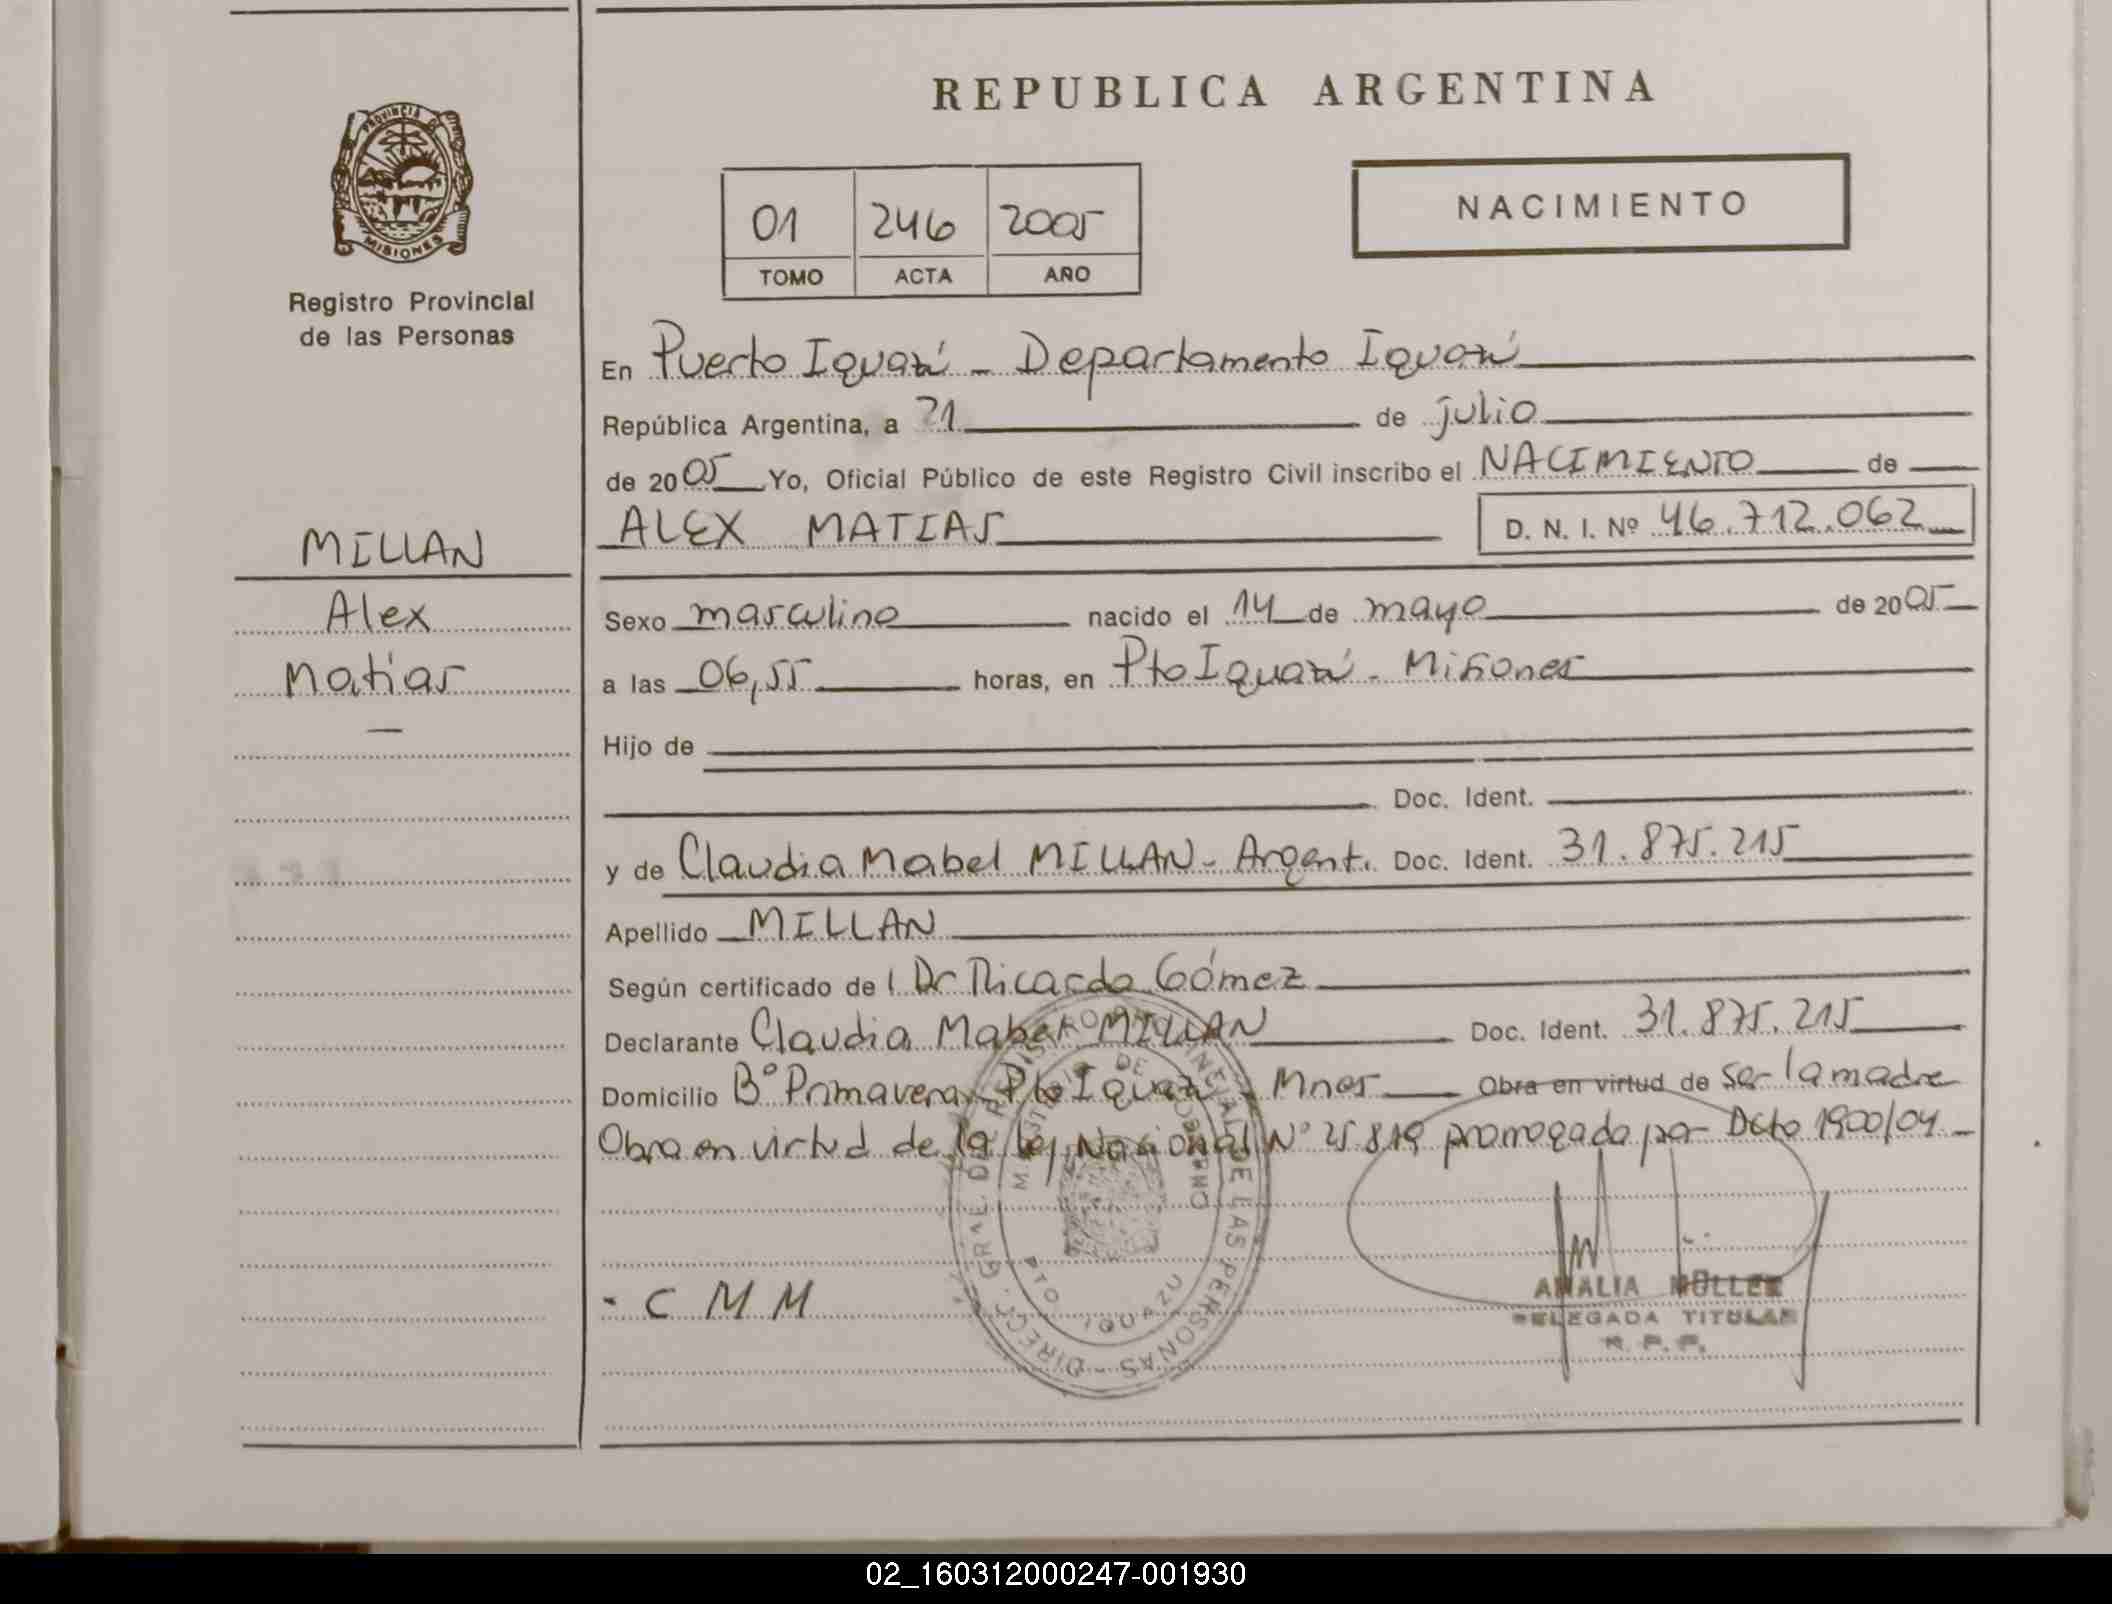 REPUBLICA ARGENTINA
PROVINCIA DE
MISIONES
Registro Provincial
de las Personas
01 246 2005
TOMO ACTA AÑO
NACIMIENTO
En Puerto Iguazú - Departamento Iguazú
República Argentina, a 21 de julio
de 2005 Yo, Oficial Público de este Registro Civil inscribo el NACIMIENTO de
ALEX MATIAS D. N. I. Nº 46.712.062
MILLAN
Alex
Matias
Sexo masculino nacido el 14 de mayo de 2005
a las 06,55 horas, en Pto Iguazú - Misiones
Hijo de
Doc. Ident.
y de Claudia Mabel MILLAN - Argent. Doc. Ident. 31.875.215
Apellido MILLAN
Según certificado de l Dr Ricardo Gómez
Declarante Claudia Mabel MILLAN Doc. Ident. 31.875.215
Domicilio Bº Primavera - Pto Iguazú - Mnes Obra en virtud de ser la madre
Obra en virtud de la ley Nacional Nº 25.819 prorrogada por Dcto 1900/04
- C M M
DIRECC. GRAL DE REGISTRO PROVINCIAL DE LAS PERSONAS
MINISTERIO DE GOBIERNO
PTO IGUAZU
AMALIA MÜLLER
DELEGADA TITULAR
R. P. P.
02_160312000247-001930